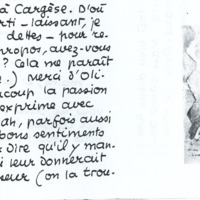 à Cargèse. D'où
rti - laissant, je
dettes - pour re-
propos, avez-vous
? Cela me paraît
.) Merci d'Oli-
coup la passion
exprime avec
ah, parfois aussi
bons sentiments
Dire qu'il y man-
i leur donnerait
heur (on la trou-